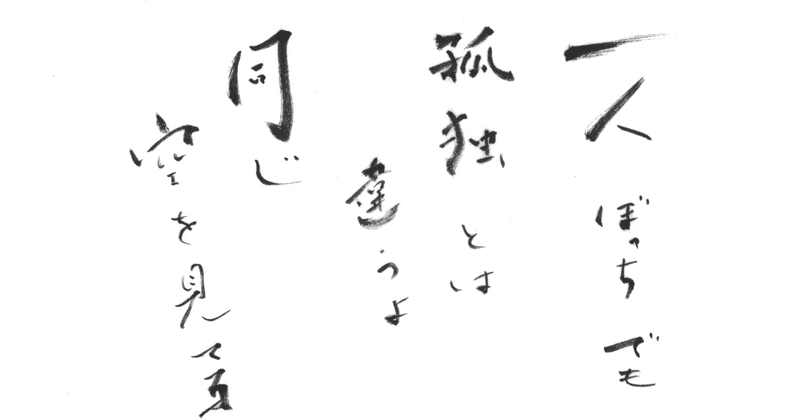 一人ぼっちでも
孤独とは
違うよ
同じ
空を見て